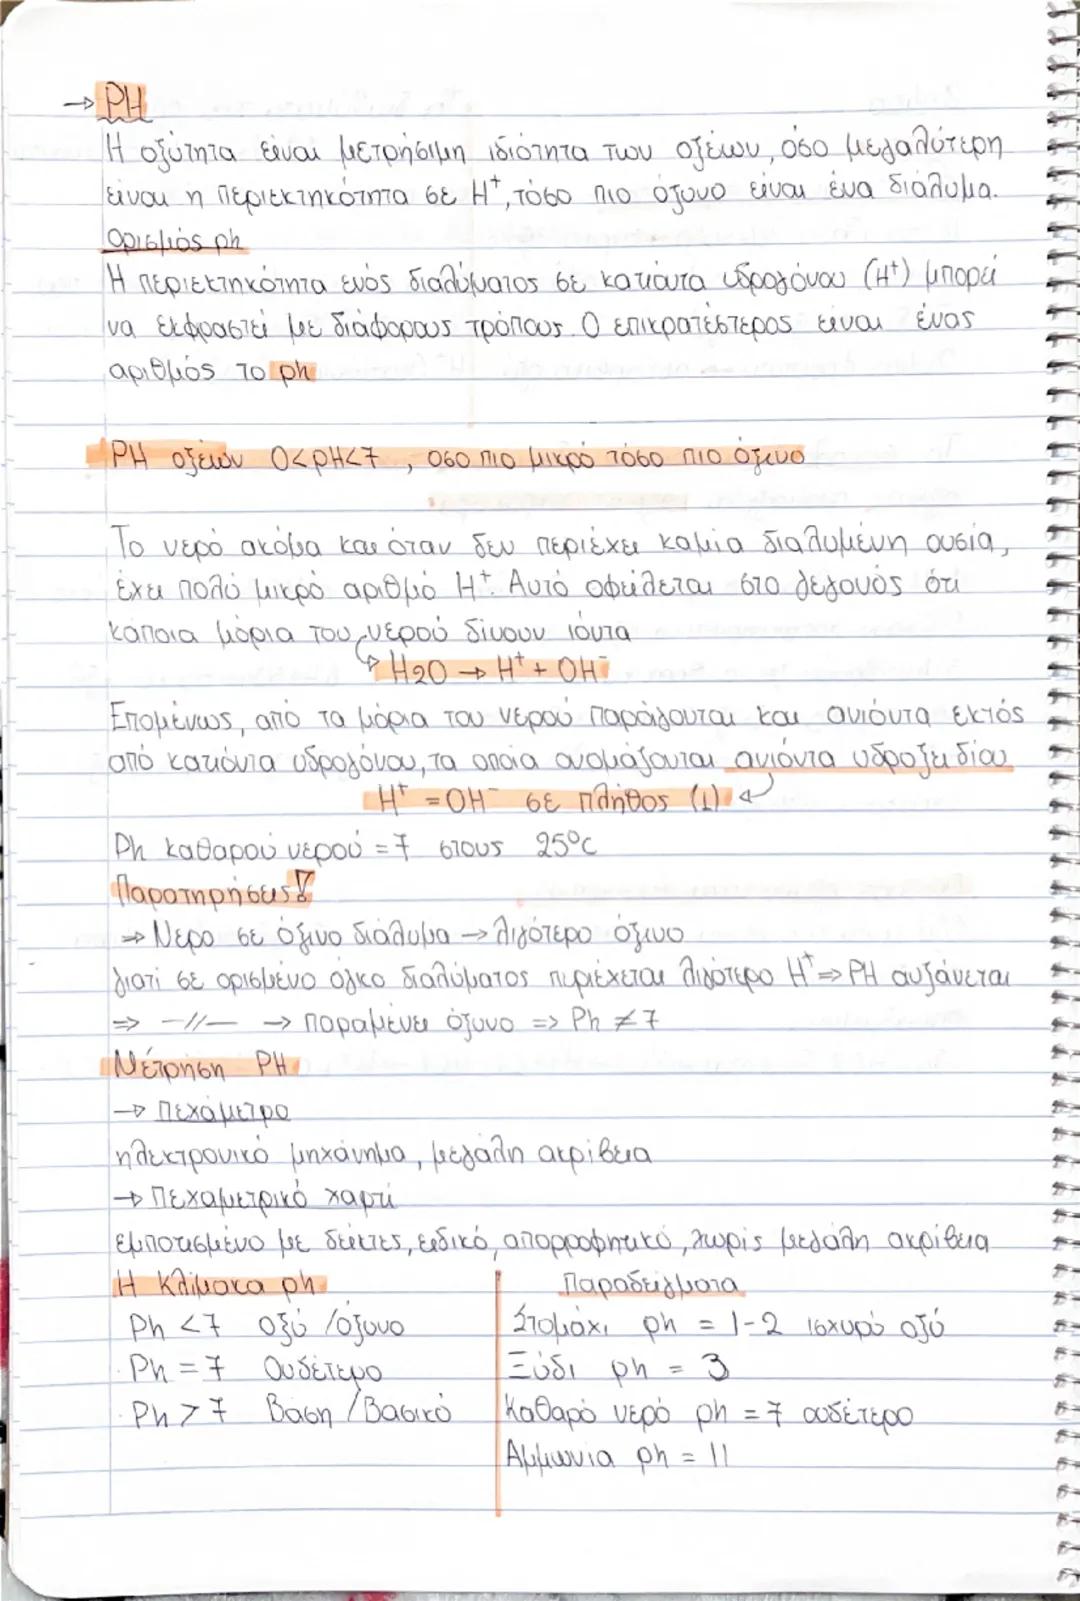 → PH
Η οξύτητα είναι μετρήσιμη ιδιότητα των οξέων, όσο μεγαλύτερη
είναι η περιεκτηκότητα σε H⁺, τόσο πιο όξινο είναι ένα διάλυμα.
Ορισμός ph
Η περιεκτηκότητα ενός διαλύματος σε κατιόντα υδρογόνου (H⁺) μπορεί
να εκφραστεί με διάφορους τρόπους. Ο επικρατέστερος είναι ένας
αριθμός το ph
PH οξέων 0<pH<7, οσο πιο μικρό τόσο πιο όξινο
Το νερό ακόμα και όταν δεν περιέχει καμία διαλυμένη ουσία,
έχει πολύ μικρό αριθμό H⁺. Αυτό οφείλεται στο γεγονός ότι
κάποια μόρια του νερού δίνουν ιόντα
H2O → H⁺ + OH⁻
Επομένως, από τα μόρια του νερού παράγονται και ανιόντα εκτός
από κατιόντα υδρογόνου, τα οποία ονομάζονται ανιόντα υδροξειδίου
H⁺ = OH⁻ σε πλήθος (1)
Ph καθαρού νερού = 7 στους 25°C
Παρατηρήσεις!
⇒ Νερο σε όξινο διάλυμα → λιγότερο όξινο
γιατί σε ορισμένο όγκο διαλύματος περιέχεται λιγότερο H⁺ ⇒ PH αυξάνεται
⇒ -//- → παραμένει όξινο => Ph ≠ 7
Μέτρηση PH
→ Πεχάμετρο
ηλεκτρονικό μηχάνημα, μεγάλη ακρίβεια
→ Πεχαμετρικό χαρτί
εμποτισμένο με δείκτες, ειδικό, απορροφητικό, χωρίς μεγάλη ακρίβεια
Η Κλίμακα ph
Ph < 7 οξύ / όξινο
Ph = 7 Ουδέτερο
Ph > 7 Βάση / Βασικό
Παραδείγματα
Στομάχι ph = 1-2 ισχυρό οξύ
Ξύδι ph = 3
Καθαρό νερό ph = 7 ουδέτερο
Αμμωνία ph = 11